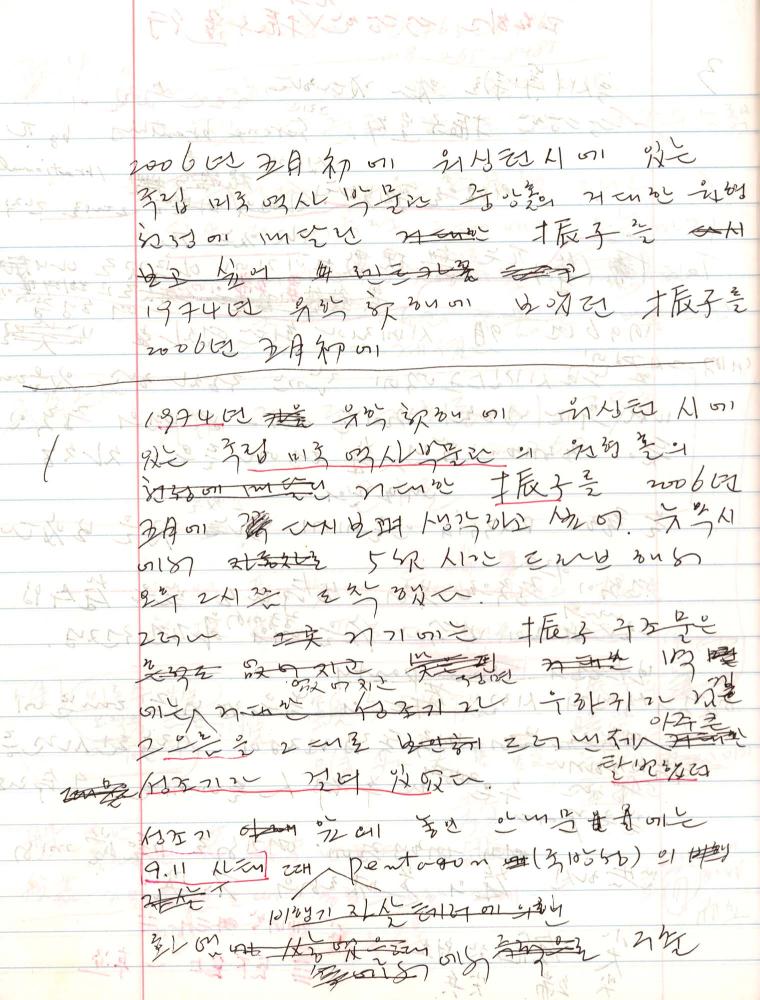 2006년 五月 初에 워싱턴시에 있는
국립 미국 역사 박물관 중앙홀의 거대한 원형
천정에 매달린 거대한 振子를
보고 싶어
1974년 유학 첫해에 보았던 振子를
2006년 五月初에
1 1974년 유학 첫해에 워싱턴 시에
있는 국립 미국 역사박물관의 원형 홀의
천정에 매달린 거대한 振子를 2006년
五月에 다시보며 생각하고 싶어. 뉴욕시
에서 자동차로 5 시간 드라브 해서
오후 2시쯤 도착했다.
그러나 거기에는 振子 구조물은
흔적도 없어지고 없어지고 정면 거대한 벽
에는 거대한 성조기가
그을음을 그대로 드러낸체 아주 큰 거대한
성조기가 걸려 있었다. 탈변했다
성조기 앞에 놓인 안내문에는
9.11 사태 때 Pentagon (국방청)의
비행기 자살 테러에 의한
화염 에서 그을